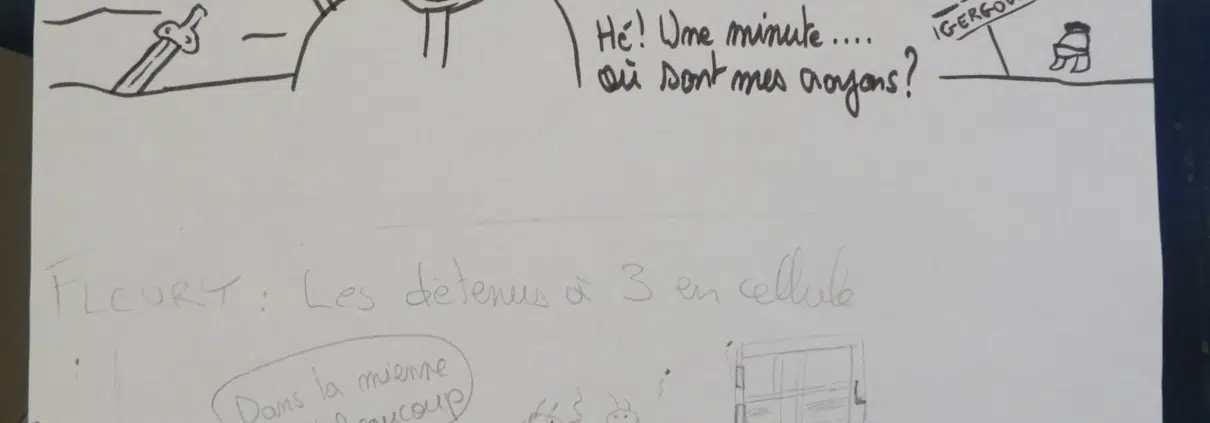 Hé! Une minute....
où sont mes crayons?
FLEURY : Les détenus à 3 en cellule
Dans la mienne
beaucoup